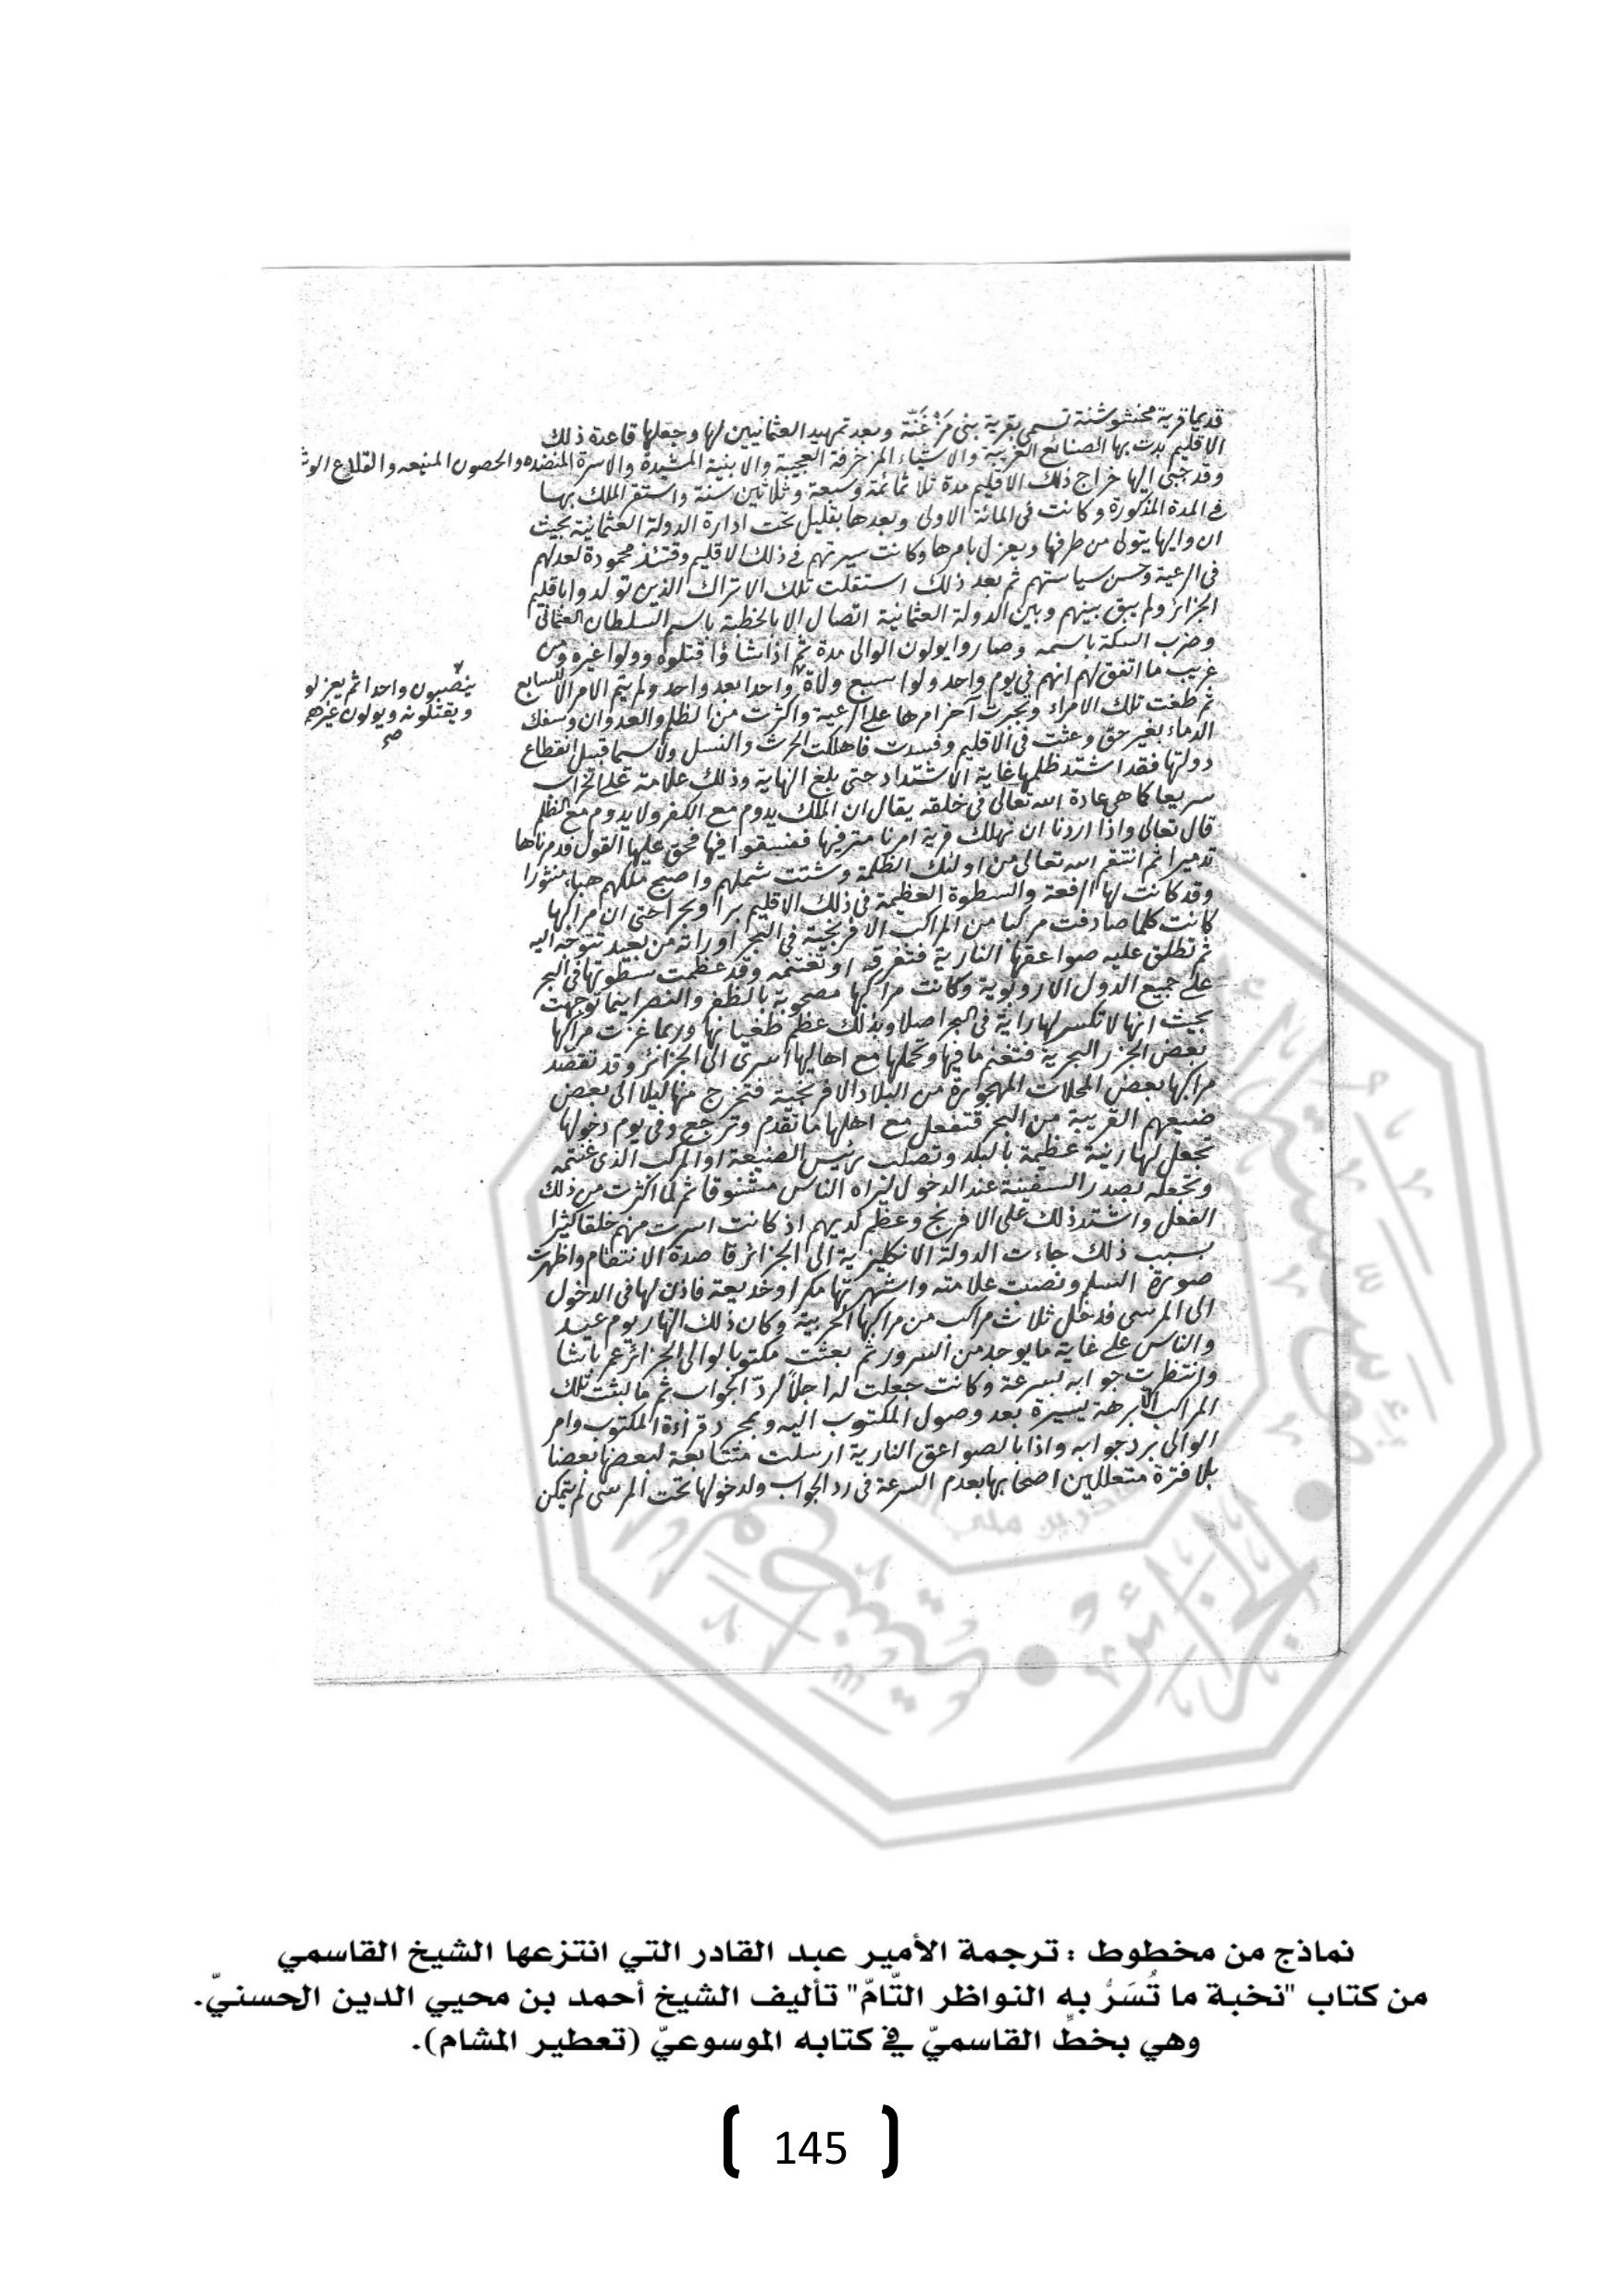 قديما قرية مخشوشنة تسمى بقرية بني مَزْغَنَّة وبعد تمهيد العثمانيين لها وجعلها قاعدة ذلك
الاقليم بدت بها الصنائع الغريبة والاشياء المزخرفة العجيبة والابنية المشيدة والاسرة المنضده والحصون المنيعه والقلاع
وقد جبى اليها خراج ذلك الاقليم مدة ثلاثمائة وسبعة وثلاثين سنة واستقر الملك بها
في المدة المذكورة وكانت في المائة الاولى وبعدها بقليل تحت ادارة الدولة العثمانية بحيث
ان واليها يتولى من طرفها ويعزل بامرها وكانت سيرتهم في ذلك الاقليم وقتئذ محمودة لعدلهم
في الرعية وحسن سياستهم ثم بعد ذلك استقلت تلك الاتراك الذين تولدوا باقليم
الجزائر ولم يبق بينهم وبين الدولة العثمانية اتصال الا بالخطبة باسم السلطان العثماني
وضرب السكة باسمه وصاروا يولون الوالي مدة ثم اذا شاؤا قتلوه وولوا غيره ومن
غريب ما اتفق لهم انهم في يوم واحد ولوا سبع ولاة واحدا بعد واحد ولم يتم الامر الا للسابع
ينصبون واحدا ثم يعزلو
ويقتلونه ويولون غيره
صح
ثم طغت تلك الامراء وتجبرت آخر امرها على الرعية واكثرت من الظلم والعدوان وسفك
الدماء بغير حق وعثت في الاقليم وفسدت فاهلكت الحرث والنسل ولا سيما قبيل انقطاع
دولتها فقد اشتد ظلمها غاية الاشتداد حتى بلغ النهاية وذلك علامة على الخراب
سريعا كما هي عادة الله تعالى في خلقه يقال ان الملك يدوم مع الكفر ولا يدوم مع الظلم
قال تعالى واذا اردنا ان نهلك قرية امرنا مترفيها ففسقوا فيها فحق عليها القول فدمرناها
تدميرا ثم انتقم الله تعالى من اولئك الظلمة وشتت شملهم واصبح ملكهم هباء منثورا
وقد كانت لها الرفعة والسطوة العظيمة في ذلك الاقليم برا وبحرا حتى ان مراكبها
كانت كلما صادفت مركبا من المراكب الافرنجية في البحر او راته من بعيد تتوجه اليه
ثم تطلق عليه صواعقها النارية فتغرقه او تغتنمه وقد عظمت سطوتها في البحر
على جميع الدول الاروبوية وكانت مراكبها مصحوبة بالظفر والنصر اينما توجهت
بحيث انها لا تكسر لها راية في البحر اصلا وبذلك عظم طغيانها وربما غزت مراكبها
بعض الجزر البحرية فتغنم ما فيها وتحملها مع اهاليها اسرى الى الجزائر وقد تقصد
مراكبها بعض المحلات المهجورة من البلاد الافرنجية فتخرج منها ليلا الى بعض
ضيعهم القريبة من البحر فتفعل مع اهلها ما تقدم وترجع وفي يوم دخولها
تجعل لها زينة عظيمة بالبلد وتصلب رئيس الضيعة او المركب الذي غنمته
وتجعله بصدر السفينة عند الدخول ليراه الناس مشنوقا ثم لما اكثرت من ذلك
الفعل واشتد ذلك على الافرنج وعظم لديهم اذ كانت اسرت منهم خلقا كثيرا
بسبب ذلك جاءت الدولة الانكليزية الى الجزائر قاصدة الانتقام واظهرت
صورة السلم ونصبت علامته واشهرتها مكرا وخديعة فاذن لها في الدخول
الى المرسى فدخل ثلاث مراكب من مراكبها الحربية وكان ذلك النهار يوم عيد
والناس على غاية ما يوجد من السرور ثم بعثت مكتوبا لوالي الجزائر عمر باشا
وانتظرت جوابه بسرعة وكانت جعلت له اجلا لردّ الجواب ثم ما لبثت تلك
المراكب الا برهة يسيرة بعد وصول المكتوب اليه وبمجرد قراءة المكتوب وامر
الوالي برد جوابه واذا بالصواعق النارية ارسلت متتابعة لبعضها بعضا
بلا فترة متعللين اصحابها بعدم السرعة في رد الجواب ولدخولها تحت المرسى لم يتمكن
نماذج من مخطوط : ترجمة الأمير عبد القادر التي انتزعها الشيخ القاسمي
من كتاب "نخبة ما تُسَرُّ به النواظر التّامّ" تأليف الشيخ أحمد بن محيي الدين الحسنيّ.
وهي بخطِّ القاسميّ في كتابه الموسوعيّ (تعطير المشام).
145